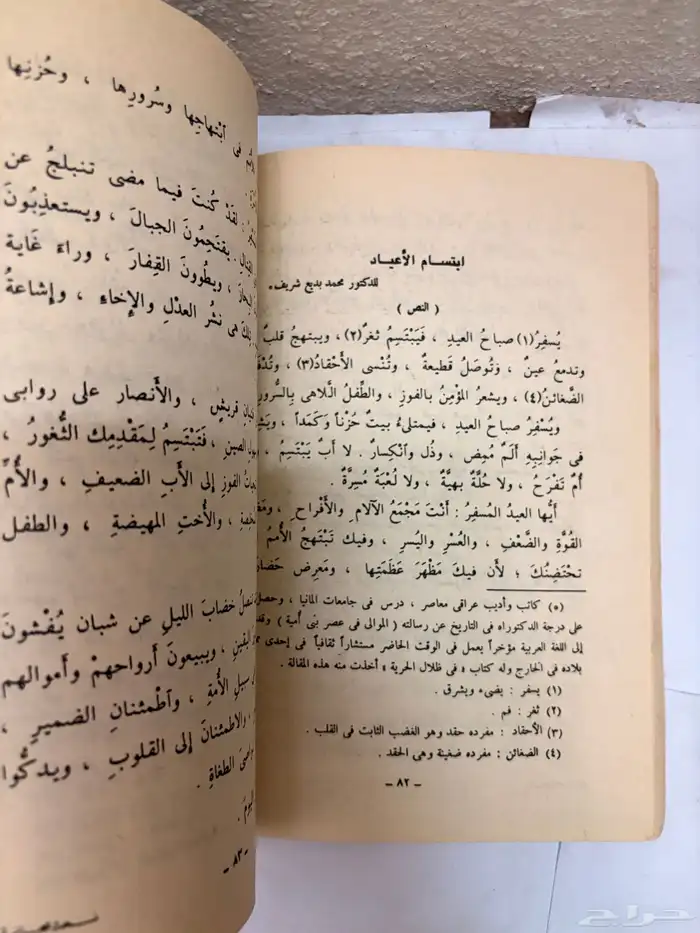 ابتسام الأعياد
للدكتور محمد بديع شريف*
( النص )
يُسفِرُ(١) صباحُ العيدِ ، فَيَبْتَسِمُ ثغرٌ(٢) ، ويبتهجُ قلبٌ
وتدمعُ عينٌ ، وتُوصَلُ قطيعةٌ ، وتُنْسى الأَحْقادُ(٣) ،
الضَّغائنُ(٤) ، ويشعرُ المؤْمِنُ بالفوزِ ، والطِّفلُ اللاهى بِالسُّرورِ
ويُسْفِرُ صباحُ العيدِ ، فيمتلىءُ بيتٌ حُزْناً وَكَمَداً ،
فى جَوانِبِهِ أَلَمٌ مُمِض ، وذُل وٱنْكِسارٌ . لا أَبٌ يَبْتَسِمُ ،
أُمٌ تَفْرَحُ ، ولا حُلَّةٌ بهيَّةٌ ، ولا لُعْبَةٌ مُسِرَّةٌ .
أَيُّها العيدُ المُسفِرُ : أَنْتَ مَجْمَعُ الآلامِ والأَفْراحِ ،
القُوَّةِ والضَّعْفِ ، والعُسْرِ واليُسرِ ، وفيك تَبْتَهجُ الأُممُ
تحْتَضِنُكَ ؛ لأَن فيكَ مَظْهَرَ عَظَمَتِها ، ومَعرِض
(*) كاتب وأديب عراقى معاصر ، درس فى جامعات المانيا ،
على درجة الدكتوراه فى التاريخ عن رسالته ( الموالى فى عصر بنى أمية )
إلى اللغة العربية مؤخراً يعمل فى الوقت الحاضر مستشاراً ثقافياً فى إحدى
بلاده فى الخارج وله كتاب « فى ظلال الحرية » أخذت منه هذه المقالة .
(١) يسفر : يضىء ويشرق .
(٢) ثغر : فم .
(٣) الأحقاد : مفرده حقد وهو الغضب الثابت فى القلب .
(٤) الضغائن : مفرده ضغينة وهى الحقد .
– ٨٢ –
فى ٱبْتهاجِها وسُرورِها ، وحُزنِها
لقَدْ كُنتَ فيما مضى تنبلجُ عن
يقتَحِمُونَ الجبالَ ، ويستعذِبُونَ
ويطوُونَ القِفارَ ، وراءَ غَاية
هى نشْرُ العدْلِ والإخاءِ ، وإشاعةُ
قريشٍ ، والأَنصار على روابى
الصينِ ، فَتَبْتَسِمُ لِمَقْدِمِك الثُّغورُ ،
الفوزِ إلى الأَبِ الضعيفِ ، والأُمِّ
، والأُختِ المهيضةِ ، والطفل
خضابَ الليلِ عن شبان يُفْشونَ
، ويبيعونَ أَرواحهمْ وأَموالهم
سبيلِ الأُمةِ ، وٱطْمئنانِ الضميرِ ،
والاطمئنانَ إلى القلوبِ ، ويدكُّوا
الطغاةِ .
اليومَ .
– ٨٣ –
حراج